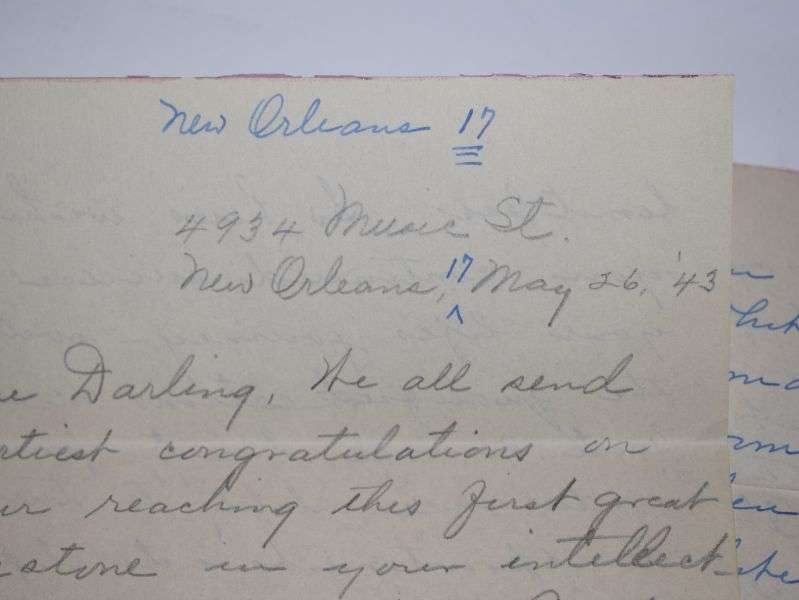 New Orleans 17
4934 Music St.
New Orleans, 17 May 26, '43
e Darling, We all send
rtiest congratulations on
ur reaching this first great
stone in your intellect-